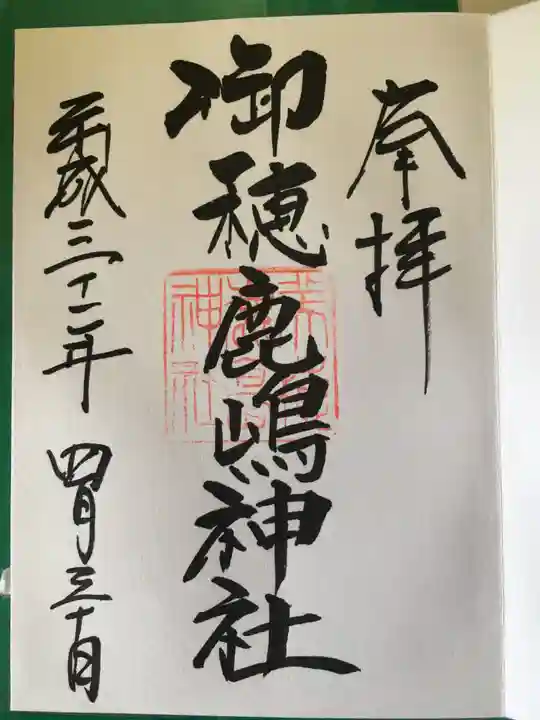 奉拝
御穂鹿嶋神社
平成三十一年 四月三十日
神社